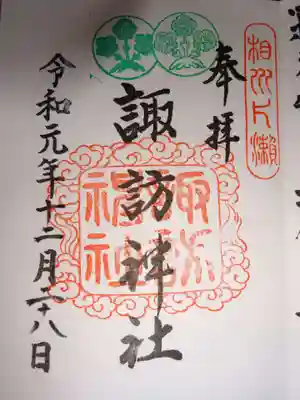 相州片瀬
奉拝
諏訪神社
諏訪神社
令和元年十二月二十八日